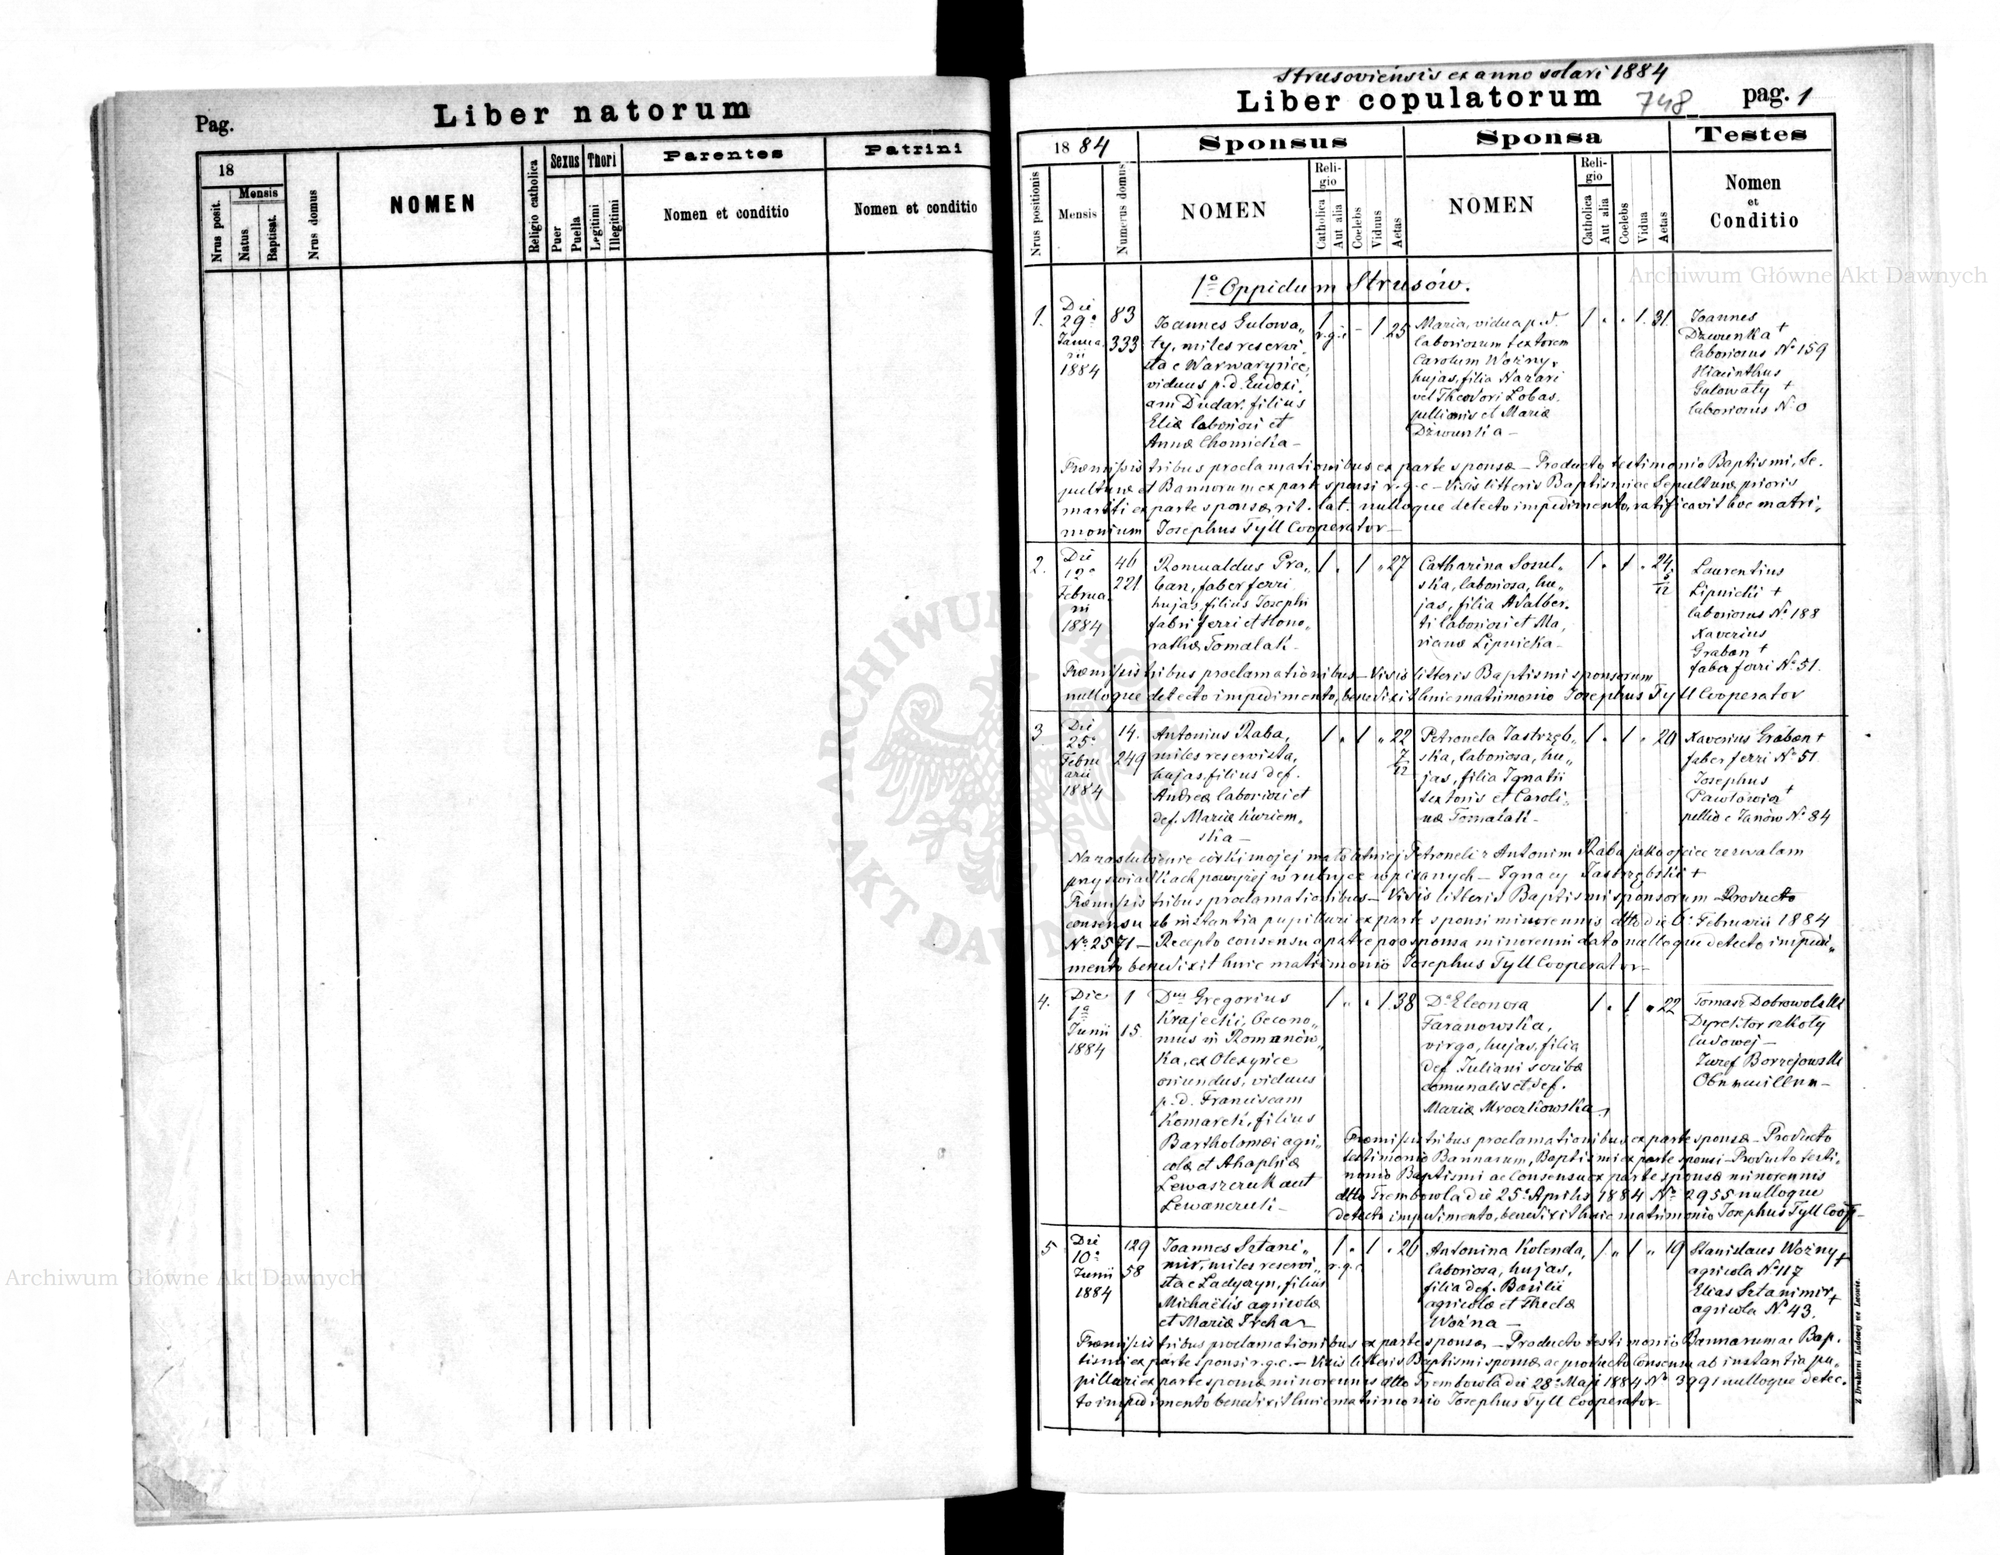 Pag.
Liber natorum
18
Nrus posit.
Mensis
Natus
Baptisat.
Nrus domus
NOMEN
Religio catholica
Sexus
Puer
Puella
Thori
Legitimi
Illegitimi
Parentes
Nomen et conditio
Patrini
Nomen et conditio
Strusoviensis ex anno solari 1884
Liber copulatorum
748
pag. 1
1884
Sponsus
Sponsa
Testes
Nrus positionis
Mensis
Numerus domus
NOMEN
Reli-
gio
Catholica
Aut alia
Coelebs
Viduus
Aetas
NOMEN
Reli-
gio
Catholica
Aut alia
Coelebs
Vidua
Aetas
Nomen
et
Conditio
1o Oppidum Strusów.
1.
Die
29a
Janua-
rii
1884
83
333
Joannes Gulowa-
ty, miles reservi-
sta e Warwarynce,
viduus p. d. Eudoxi-
am Dudar, filius
Eliæ laboriosi et
Annæ Chomicka –
1
r.g.c
–
1
25
Maria, vidua p. d.
laboriosum textorem
Carolum Woźny,
hujas, filia Nazari
vel Theodori Lobas
pellionis et Mariæ
Dzwunka –
1 . . 1. 31.
Joannes
Dzwunka +
laboriosus No 159
Hiacinthus
Gulowaty +
laboriosus N. 0
Præmissis tribus proclamationibus ex parte sponsæ – Producto testimonio Baptismi, Se-
pulturæ et Bannorum ex parte sponsi r.g.c – Visis litteris Baptismi ac Sepulturæ prioris
mariti ex parte sponsæ, rit. lat. nulloque detecto impedimento, ratificavit hoc matri-
monium Josephus Tyll Cooperator –
2.
Die
12a
Februa-
rii
1884
46
221
Romualdus Gra-
ban, faber ferri
hujas, filius Josephi
fabri ferri et Hono-
rathæ Tomalak –
1 . 1 . 27
Catharina Sosul-
ska, laboriosa, hu-
jas, filia Adalber-
ti laboriosi et Ma-
rianæ Lipnicka –
1 . 1 . 24
5/12
Laurentius
Lipnicki +
laboriosus No 188
Xaverius
Graban +
faber ferri No 51.
Præmissis tribus proclamationibus – Visis litteris Baptismi sponsorum
nulloque detecto impedimento, benedixit huic matrimonio Josephus Tyll Cooperator
3.
Die
25a
Febru
arii
1884
14.
249
Antonius Raba,
miles reservista,
hujas, filius def.
Andreæ laboriosi et
def. Mariæ Kuriem-
ska –
1 . 1 . 22
7/12
Petronela Jastrzęb-
ska, laboriosa, hu-
jas, filia Ignatii
textoris et Caroli-
næ Tomalak –
1 . 1 . 20
Xaverius Graban +
faber ferri No 51
Josephus
Pawłowicz +
pellio e Janów No 84
Na zaslubienie córki mojej małoletniej Petroneli z Antonim Raba jako ojciec zezwalam
przy swiadkach powyżej w rubryce wpisanych – Ignacy Jastrzębski +
Præmissis tribus proclamationibus – Visis litteris Baptismi sponsorum – Producto
consensu ab instantia pupillari ex parte sponsi minorennis dtto die 6a Februarii 1884
No 2571 – Recepto consensu a patre pro sponsa minorenni dato nulloque detecto impedi-
mento benedixit huic matrimonio Josephus Tyll Cooperator –
4.
Die
1a
Junii
1884
1
15
Dnus Gregorius
Krajecki, Oecono-
mus in Romanów-
ka, ex Olexynce
oriundus, viduus
p. d. Franciscam
Komarek, filius
Bartholomæi agri-
colæ et Ahaphiæ
Lewaszczuk aut
Lewanczuk –
1 . . 1. 38
Da Eleonora
Taranowska,
virgo, hujas, filia
def. Juliani scribæ
comunalis et def.
Mariæ Mroczkowska –
1 . 1 . 22
Tomasz Dobrowolski
Dyrektor szkoły
ludowej –
Juzef Borzejowski
Præmissis tribus proclamationibus ex parte sponsæ – Producto
testimonio Bannorum, Baptismi ex parte sponsi – Producto testi-
monio Baptismi ac Consensu ex parte sponsæ minorennis
dtto Trembowla die 25a Aprilis 1884 No 2955 nulloque
detecto impedimento, benedixit huic matrimonio Josephus Tyll Coop –
5
Die
10a
Junii
1884
129
58
Joannes Sztani-
mir, miles reservi-
sta e Ladyczyn, filius
Michaëlis agricolæ
et Mariæ
1 . 1 . 26
r.g.c
Antonina Kolenda,
laboriosa, hujas,
filia def. Basilii
agricolæ et Theclæ
Woźna –
1 . 1 . 19
Stanislaus Woźny +
agricola No 117
Elias Sztanimir +
agricola No 43.
Præmissis tribus proclamationibus ex parte sponsæ – Producto testimonio Bannorum ac Bap-
tismi ex parte sponsi r.g.c. – Visis litteris Baptismi sponsæ ac producto Consensu ab instantia pu-
pillari ex parte sponsæ minorennis dtto Trembowla die 28a Maji 1884 No 3991 nulloque detec-
to impedimento benedixit huic matrimonio Josephus Tyll Cooperator –
Z Drukarni Ludowej we Lwowie.
Archiwum Główne Akt Dawnych
Archiwum Główne Akt Dawnych
ARCHIWUM GŁÓWNE AKT DAWNYCH